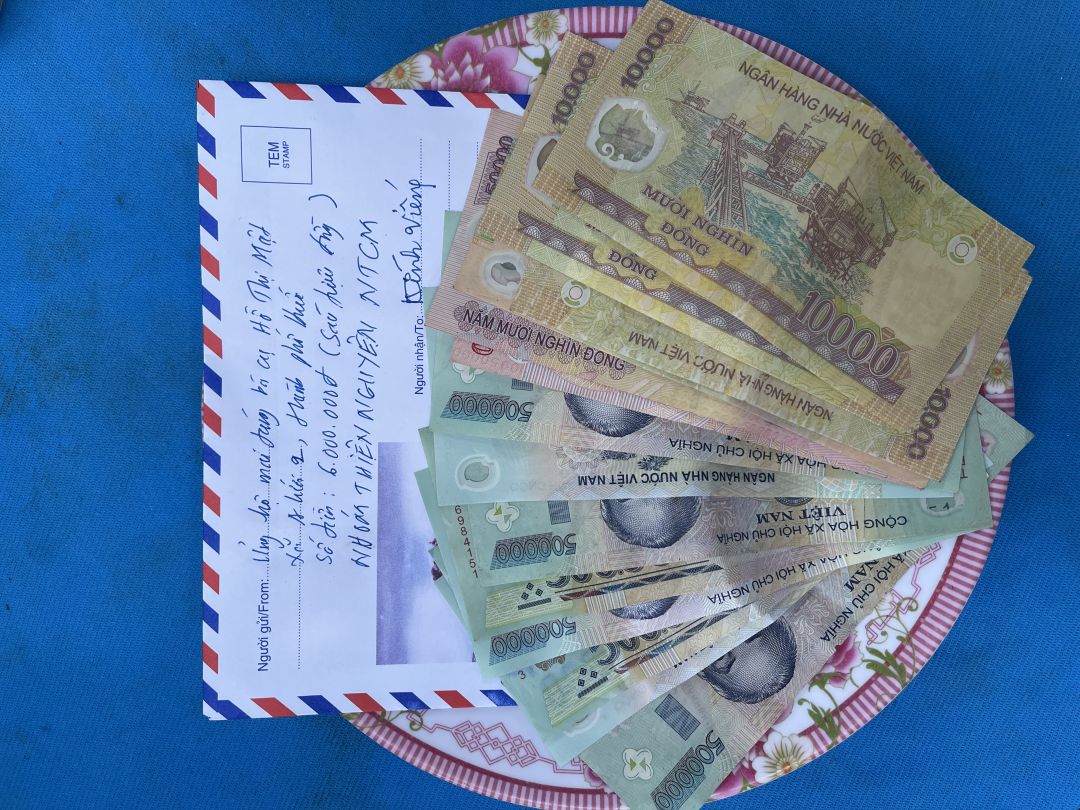 TEM
STAMP
Người gửi/From: Ủng hộ mai táng bà cụ Hồ Thị Mật
Xã A Lưới 2, thành phố Huế
Số tiền: 6.000.000đ (sáu triệu đồng)
NHÓM THIỆN NGUYỆN NTCM
Người nhận/To: Kính viếng
10000
NGÂN HÀNG NHÀ NƯỚC VIỆT NAM
MƯỜI NGHÌN
ĐỒNG
10000
10000
ĐỒNG
NGÂN HÀNG NHÀ NƯỚC VIỆT NAM
10000
50000
NĂM MƯƠI NGHÌN ĐỒNG
500000
CỘNG HÒA XÃ HỘI CHỦ NGHĨA
NGÂN HÀNG NHÀ NƯỚC VIỆT NAM
CỘNG HÒA XÃ HỘI CHỦ NGHĨA
VIỆT NAM
500000
6984151
XÃ HỘI CHỦ NGHĨA
500000
XÃ HỘI CHỦ NGHĨA
NAM
500000